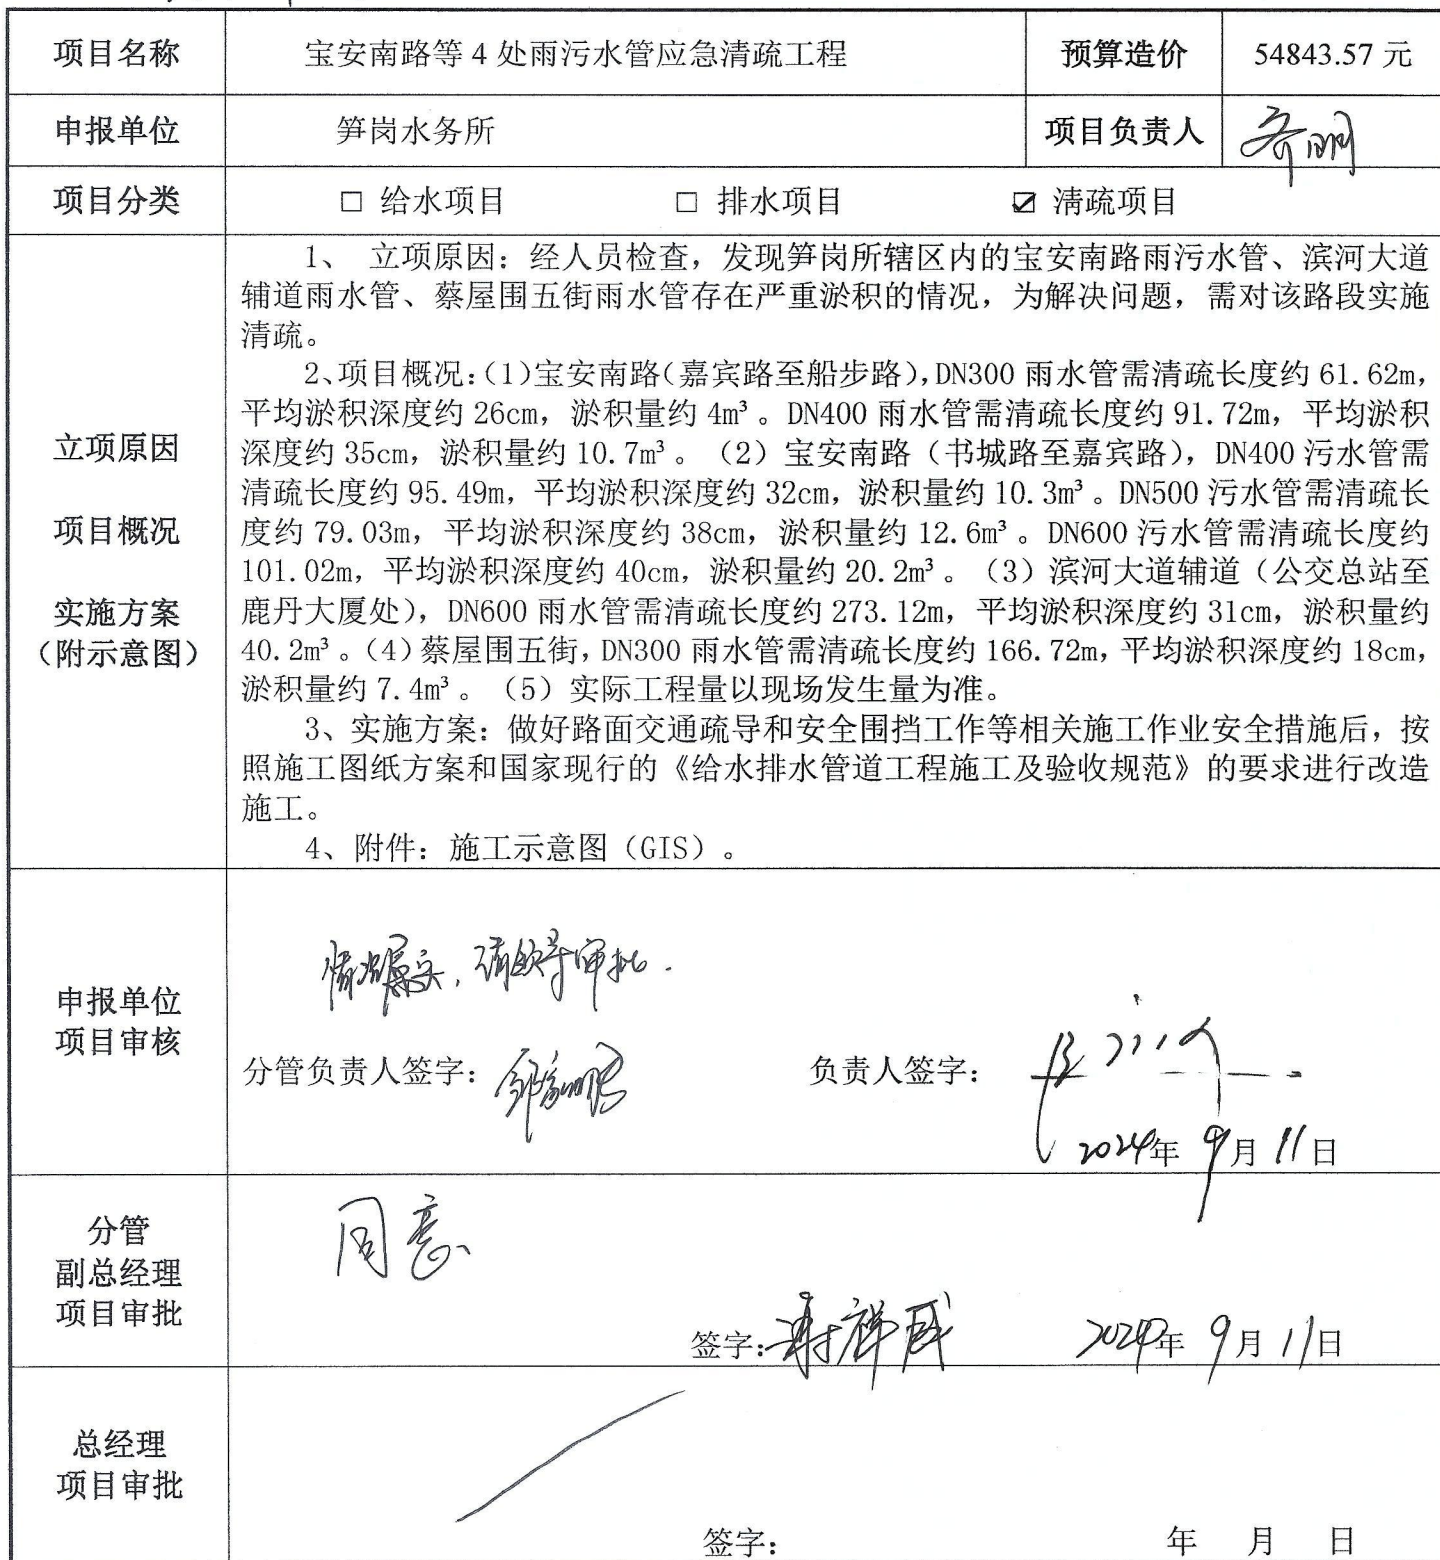 项目名称 宝安南路等 4 处雨污水管应急清疏工程 预算造价 54843.57 元
申报单位 笋岗水务所 项目负责人 齐明
项目分类 □ 给水项目 □ 排水项目 ☑ 清疏项目
立项原因
项目概况
实施方案
（附示意图）
1、 立项原因：经人员检查，发现笋岗所辖区内的宝安南路雨污水管、滨河大道
辅道雨水管、蔡屋围五街雨水管存在严重淤积的情况，为解决问题，需对该路段实施
清疏。
2、项目概况：（1）宝安南路（嘉宾路至船步路），DN300 雨水管需清疏长度约 61.62m，
平均淤积深度约 26cm，淤积量约 4m³。DN400 雨水管需清疏长度约 91.72m，平均淤积
深度约 35cm，淤积量约 10.7m³。（2）宝安南路（书城路至嘉宾路），DN400 污水管需
清疏长度约 95.49m，平均淤积深度约 32cm，淤积量约 10.3m³。DN500 污水管需清疏长
度约 79.03m，平均淤积深度约 38cm，淤积量约 12.6m³。DN600 污水管需清疏长度约
101.02m，平均淤积深度约 40cm，淤积量约 20.2m³。（3）滨河大道辅道（公交总站至
鹿丹大厦处），DN600 雨水管需清疏长度约 273.12m，平均淤积深度约 31cm，淤积量约
40.2m³。（4）蔡屋围五街，DN300 雨水管需清疏长度约 166.72m，平均淤积深度约 18cm，
淤积量约 7.4m³。（5）实际工程量以现场发生量为准。
3、实施方案：做好路面交通疏导和安全围挡工作等相关施工作业安全措施后，按
照施工图纸方案和国家现行的《给水排水管道工程施工及验收规范》的要求进行改造
施工。
4、附件：施工示意图（GIS）。
申报单位
项目审核
情况属实，请领导审批.
分管负责人签字： 负责人签字：
2024年 9月 11日
分管
副总经理
项目审批
同意
签字： 2024年 9月 11日
总经理
项目审批
签字： 年 月 日